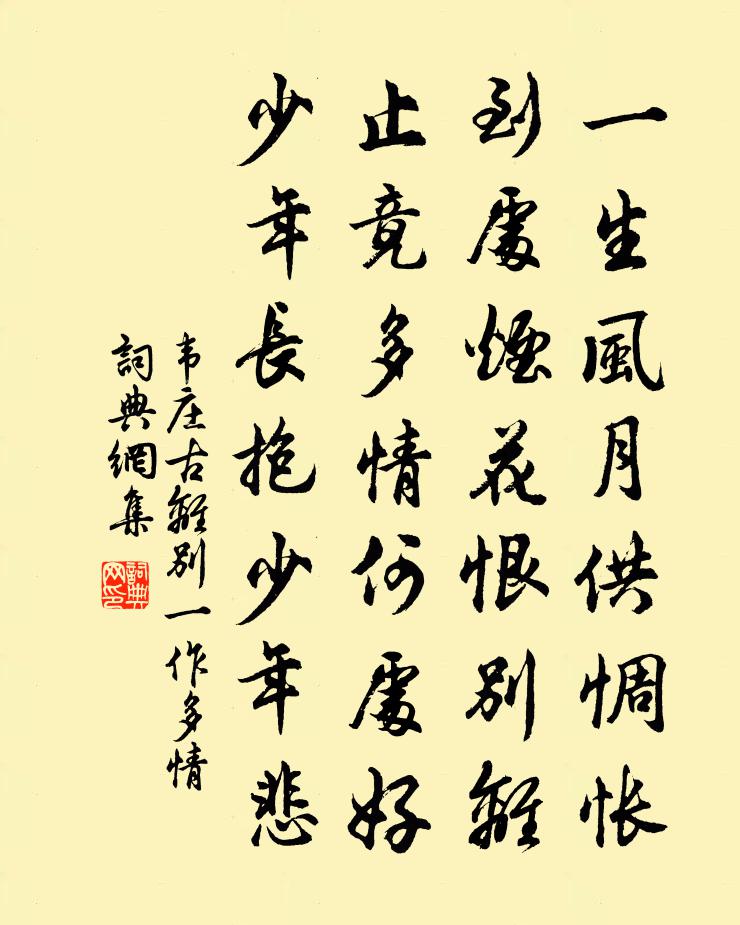 一生風月供惆怅
到處煙花恨别離
止竟多情何處好
少年長抱少年悲
韦庄古離别一作多情
詞典網集
詞典网印